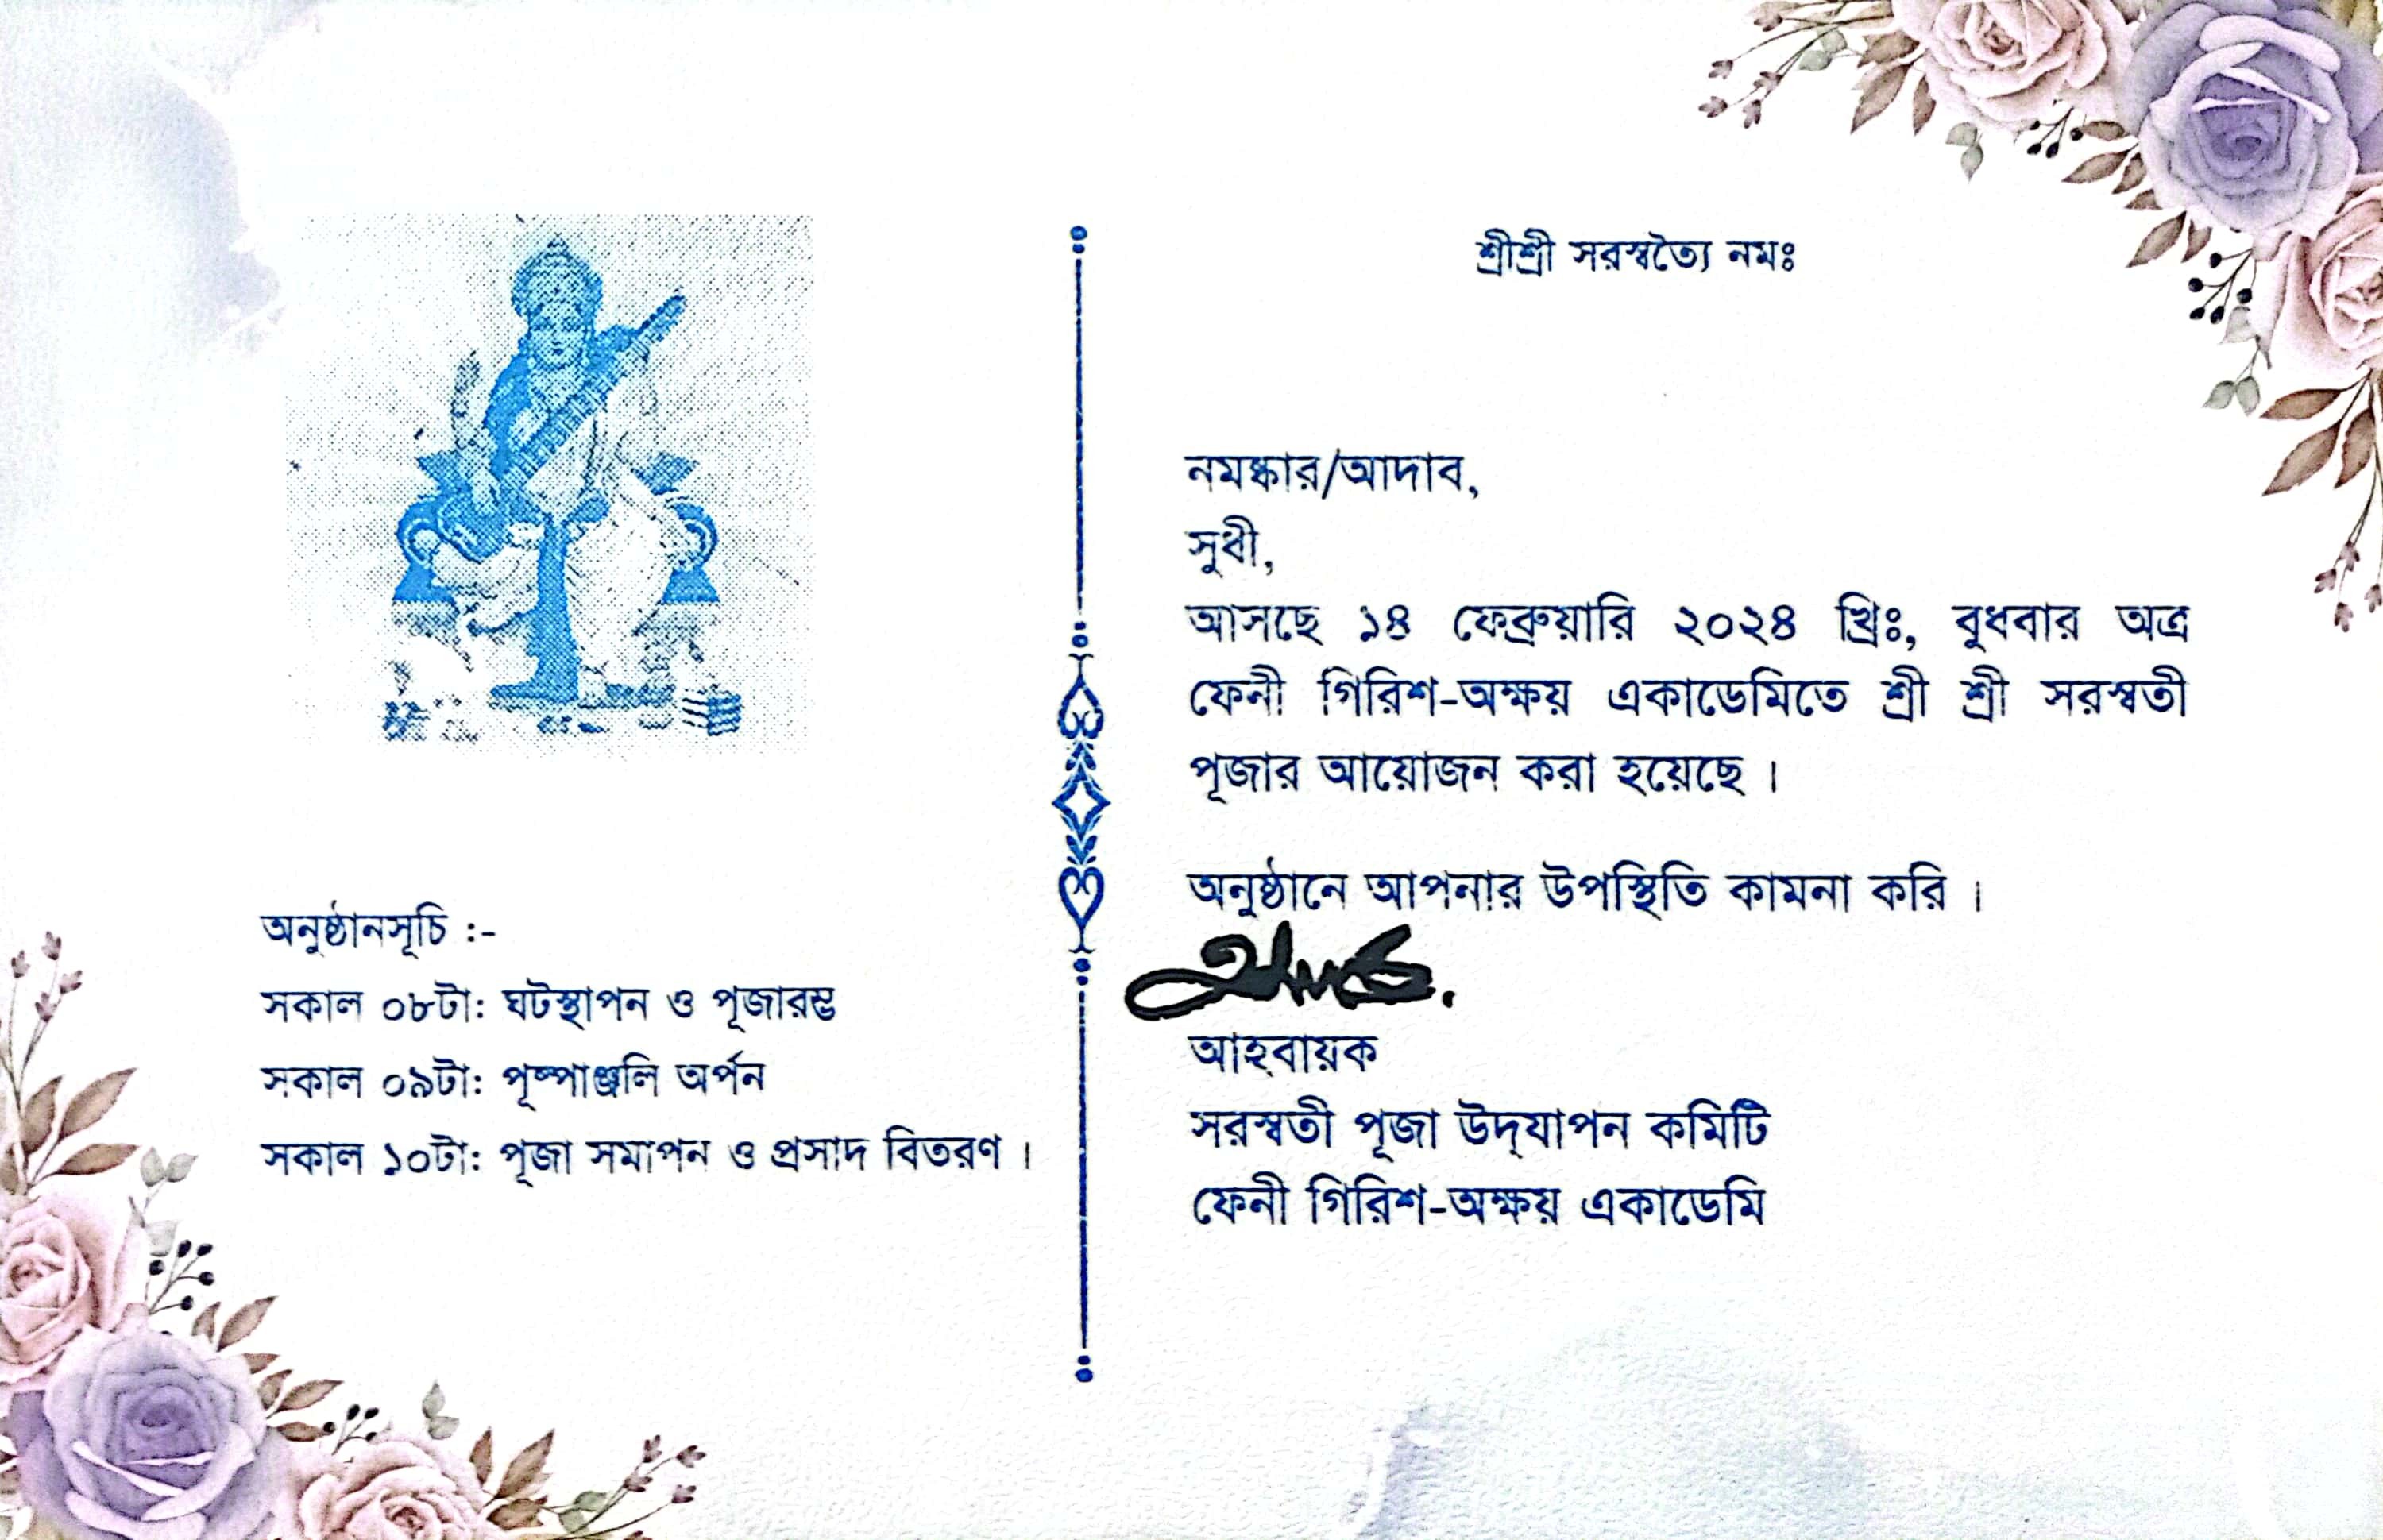 শ্রীশ্রী সরস্বত্যৈ নমঃ
নমস্কার/আদাব,
সুধী,
আসছে ১৪ ফেব্রুয়ারি ২০২৪ খ্রিঃ, বুধবার অত্র
ফেনী গিরিশ-অক্ষয় একাডেমিতে শ্রী শ্রী সরস্বতী
পূজার আয়োজন করা হয়েছে ।
অনুষ্ঠানে আপনার উপস্থিতি কামনা করি ।
আহবায়ক
সরস্বতী পূজা উদ্‌যাপন কমিটি
ফেনী গিরিশ-অক্ষয় একাডেমি
অনুষ্ঠানসূচি :-
সকাল ০৮টা: ঘটস্থাপন ও পূজারম্ভ
সকাল ০৯টা: পূষ্পাঞ্জলি অর্পন
সকাল ১০টা: পূজা সমাপন ও প্রসাদ বিতরণ ।